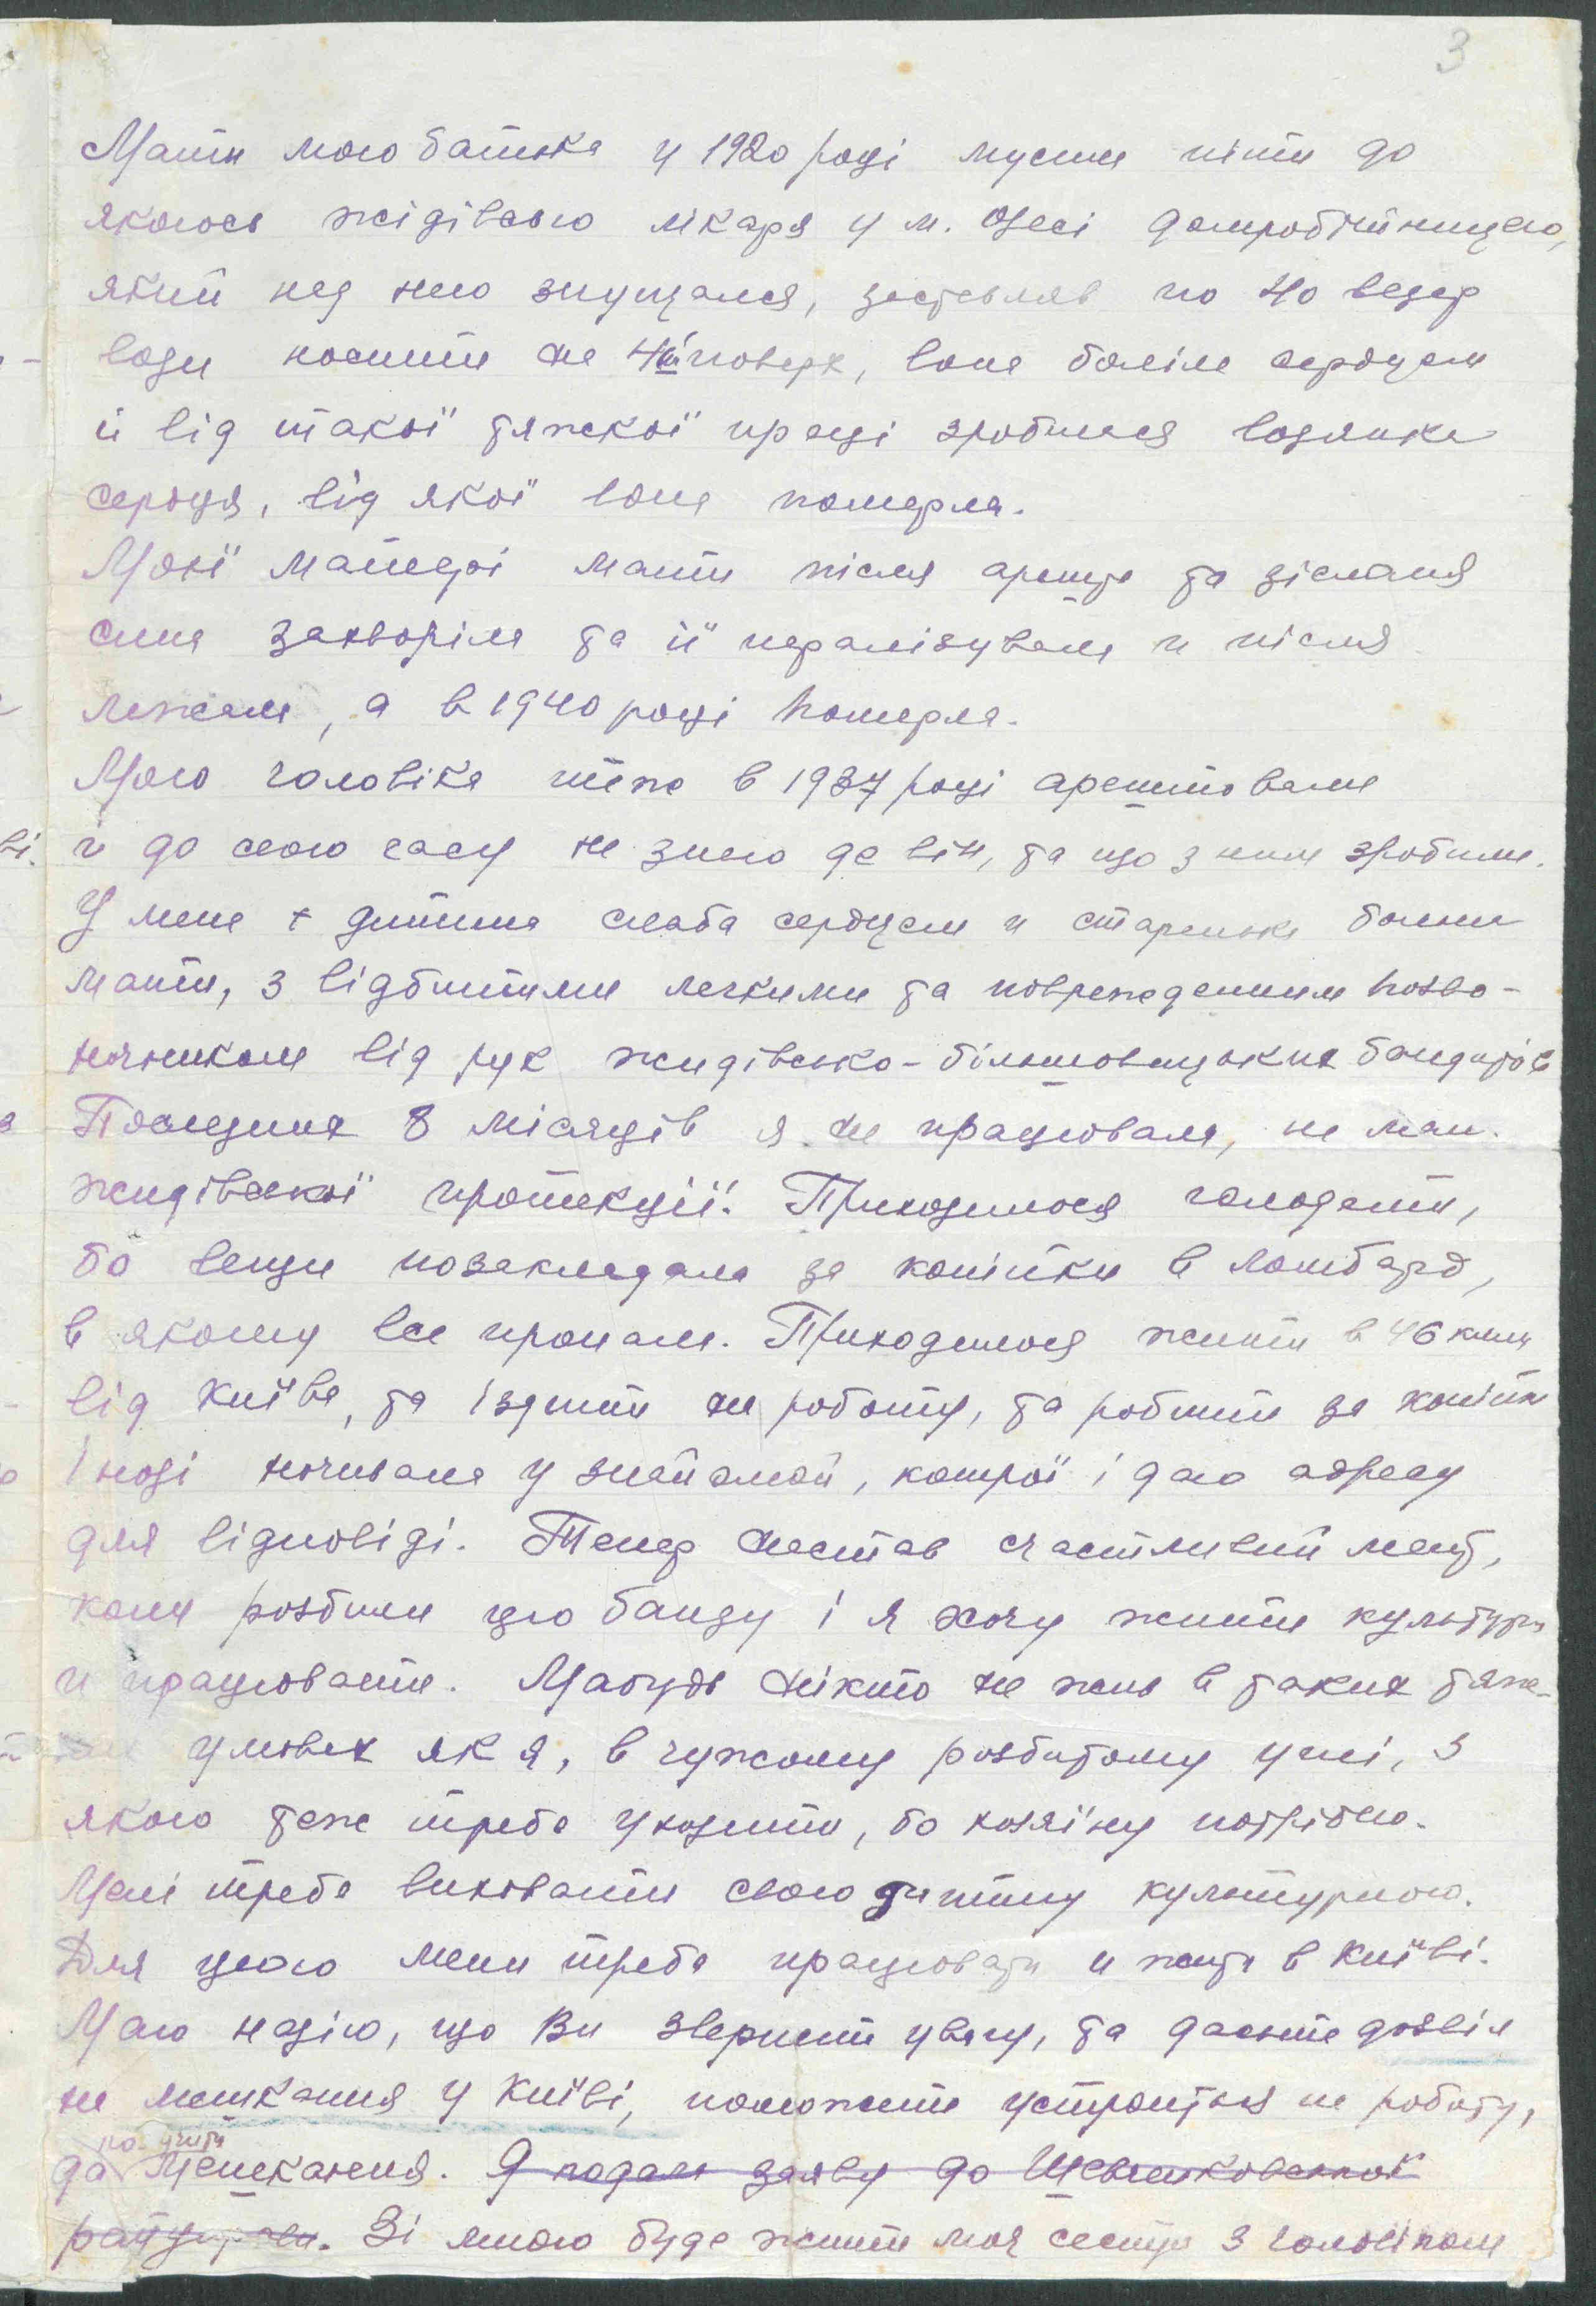 3
Мати мого батька у 1920 році мусила піти до
якогось жідівсього лікаря у м. Одесі домробітницею,
який над нею знущался, заставляв по 40 ведер
води носити на 4ий поверх, вона боліла сердцем
й від такої тяжкої праці зробилася водянка
сердця, від якої вона померла.
Моєї матері мати після арешта та зіслання
сина захворіла та її паралізувала и після
лежала, а в 1940 році померла.
Мого чоловіка теж в 1937 році арештовали
и до сього часу не знаю де він, та що з ним зробили.
У мене є дитина слаба сердцем и старенька больна
мати, з відбитими легкими та поврежденним позво-
ночником від рук жидівсько-більшовицьких бандитів
Последние 8 місяців я не працювала, не мала
жидівської протекції. Приходилося голодати,
бо вещи позакладала за копійки в ломбард,
в якому все пропало. Приходилося жити в 46 клм
від Київа, та їздити на роботу, та робити за копійки
Іноді ночивала у знайомой, котрої і даю адресу
для відповіді. Тепер настав счастливий мент,
коли розбили цю банду і я хочу жити культурн
и працювати. Мабудь нікто не жив в таких тяж-
умовах як я, в чужому розбитому углі, з
якого теж треба уходити, бо хозяїну потрібно.
Мені треба виховати свою дитину культурною.
Для цього мени треба працювати и жити в Київі.
Маю надію, що Ви звернете увагу, та дасьте дозвіл
на мешкання у Київі, поможите устроится на роботу,
получити
да мешкання. Я подала заяву до Шевченковської
райуправи. Зі мною буде жити моя сестра з чоловіком